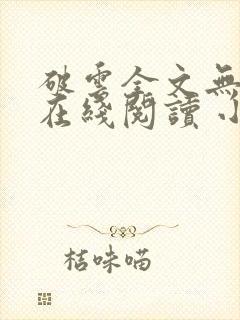 破雲全文無
在綫閱讀 小
桔味喵